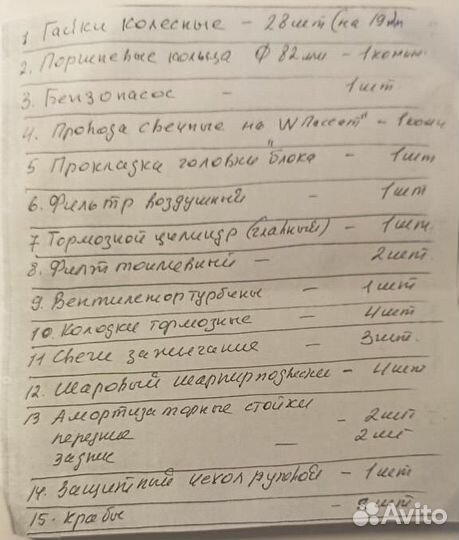 1. Гайки колесные - 28 шт (на 19 мм
2. Поршневые кольца Ф 82 мм - 1 компл.
3. Бензонасос - 1 шт
4. Провода свечные на W Пассат" - 1 комп
5 Прокладка головки "блока - 1 шт
6. Фильтр воздушный - 1 шт
7. Тормозной цилиндр (главный) - 1 шт.
8. Филт топливный - 2 шт.
9. Вентилятор турбины - 1 шт
10. Колодки тормозные - 4 шт
11 Свечи зажигания - 3 шт.
12. Шаровый шарнир подвески - 4 шт
13 Амортизаторные стойки
передние - 2 шт
задние - 2 шт
14. Защитный чехол рулевой - 1 шт
15. Крабы - шт.
Avito